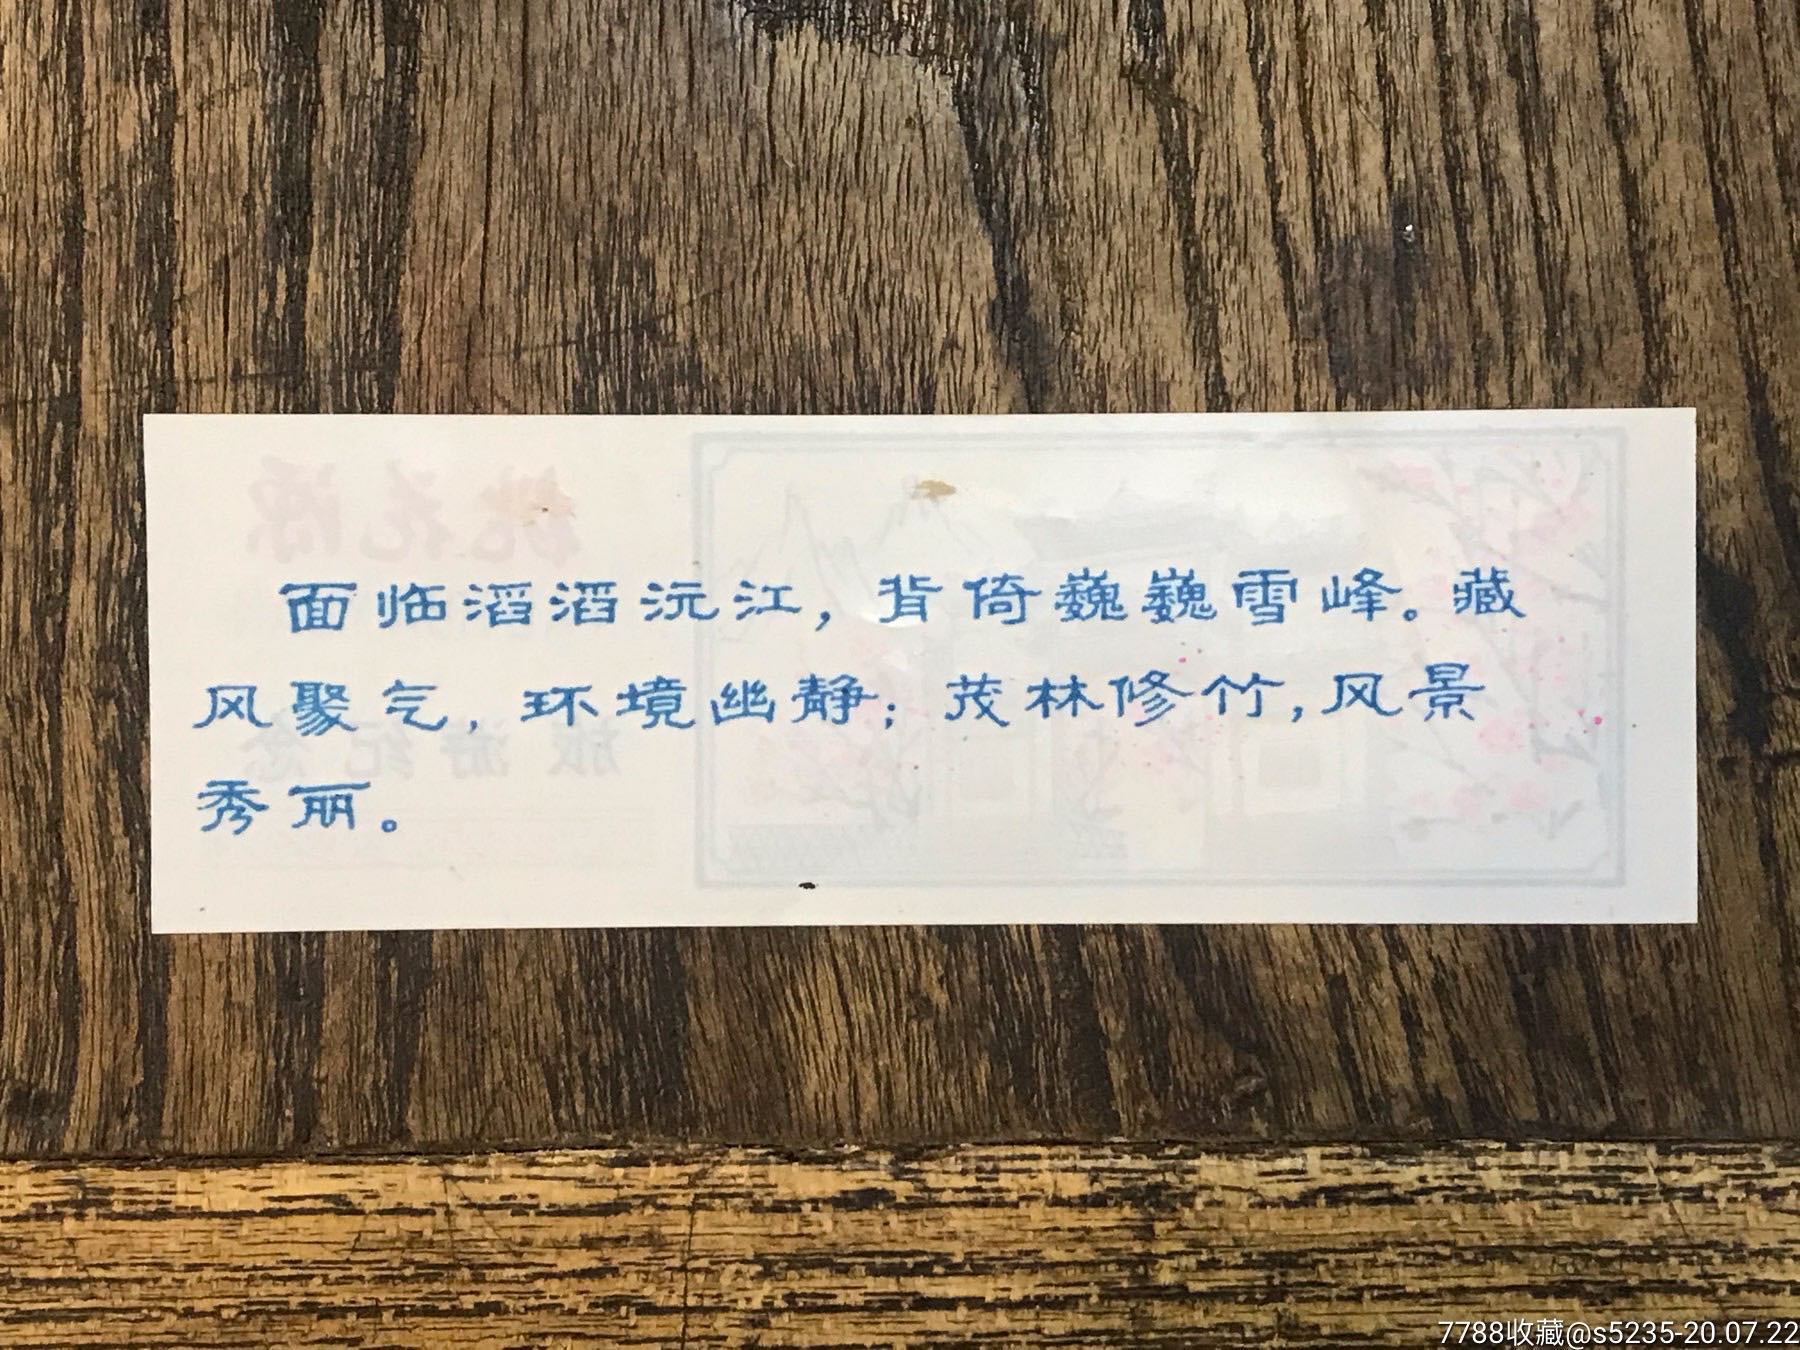 面临滔滔沅江，背倚巍巍雪峰。藏
风聚气，环境幽静；茂林修竹，风景
秀丽。
桃花源
旅游纪念
7788收藏@s5235-20.07.22